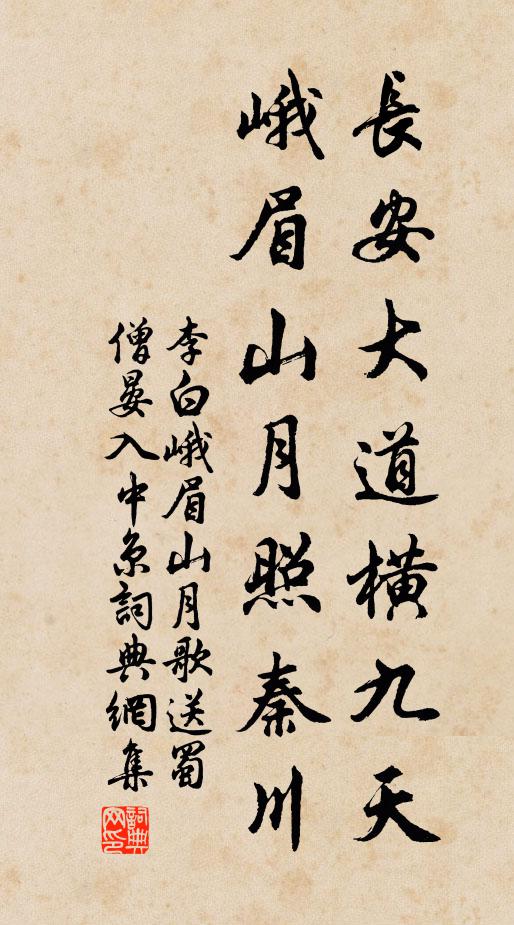 長安大道橫九天
峨眉山月照秦川
李白峨眉山月歌送蜀
僧晏入中京詞典網集
詞典
网印